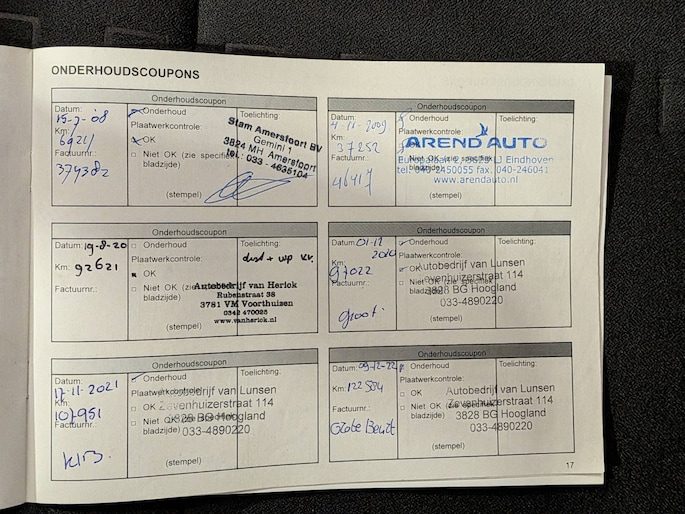 ONDERHOUDSCOUPONS
Onderhoudscoupon
Datum:
Onderhoud
Toelichting:
15-7-'08
Plaatwerkcontrole:
Km:
OK
6921/
Niet OK (zie specifiek
bladzijde)
Factuurnr.:
374382
(stempel)
Stam Amersfoort BV
Gemini 1
3824 MH Amersfoort
tel.: 033 - 4635104
Onderhoudscoupon
Datum:
4-11-2009
Km:
37252
Factuurnr.:
46417
ARENDAUTO
5623 LJ Eindhoven
tel. 040-2450055 fax. 040-246041
www.arendauto.nl
Niet OK (zie specifiek
bladzijde)
(stempel)
Onderhoudscoupon
Datum: 19-8-20
Onderhoud
Toelichting:
Plaatwerkcontrole:
Km: 92621
OK
Niet OK (zie
bladzijde)
Factuurnr.:
(stempel)
Autobedrijf van Herick
Rubenstraat 38
3781 VM Voorthuizen
0342 470025
www.vanherick.nl
Onderhoudscoupon
Datum: 01-12
2020
Onderhoud
Toelichting:
Plaatwerkcontrole:
Km:
97022
OK
Niet OK (zie specifiek
bladzijde)
Factuurnr.:
groot.
(stempel)
Autobedrijf van Lunsen
Zevenhuizerstraat 114
3828 BG Hoogland
033-4890220
Onderhoudscoupon
Datum:
17-11-2021
Onderhoud
Toelichting:
Plaatwerkcontrole:
Km:
107951
OK
Niet OK (zie specifiek
bladzijde)
Factuurnr.:
(stempel)
Autobedrijf van Lunsen
Zevenhuizerstraat 114
3828 BG Hoogland
033-4890220
Onderhoudscoupon
Datum: 09-12-22
Onderhoud
Toelichting:
Plaatwerkcontrole:
Km: 122584
OK
Niet OK (zie specifiek
bladzijde)
Factuurnr.:
Grote Beurt
(stempel)
Autobedrijf van Lunsen
Zevenhuizerstraat 114
3828 BG Hoogland
033-4890220
17